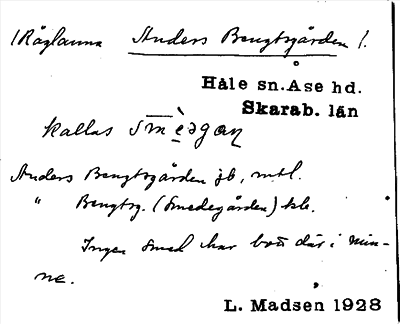 (Röglanna Anders Bengtsgården).
Håle sn. Åse hd.
Skarab. län
kallas smèdgaɳ
Anders Bengtsgården jb, mtl.
" Bengtsg. (Smedegården) kb.
Ingen smed har bott där i min-
ne.
L. Madsen 1928